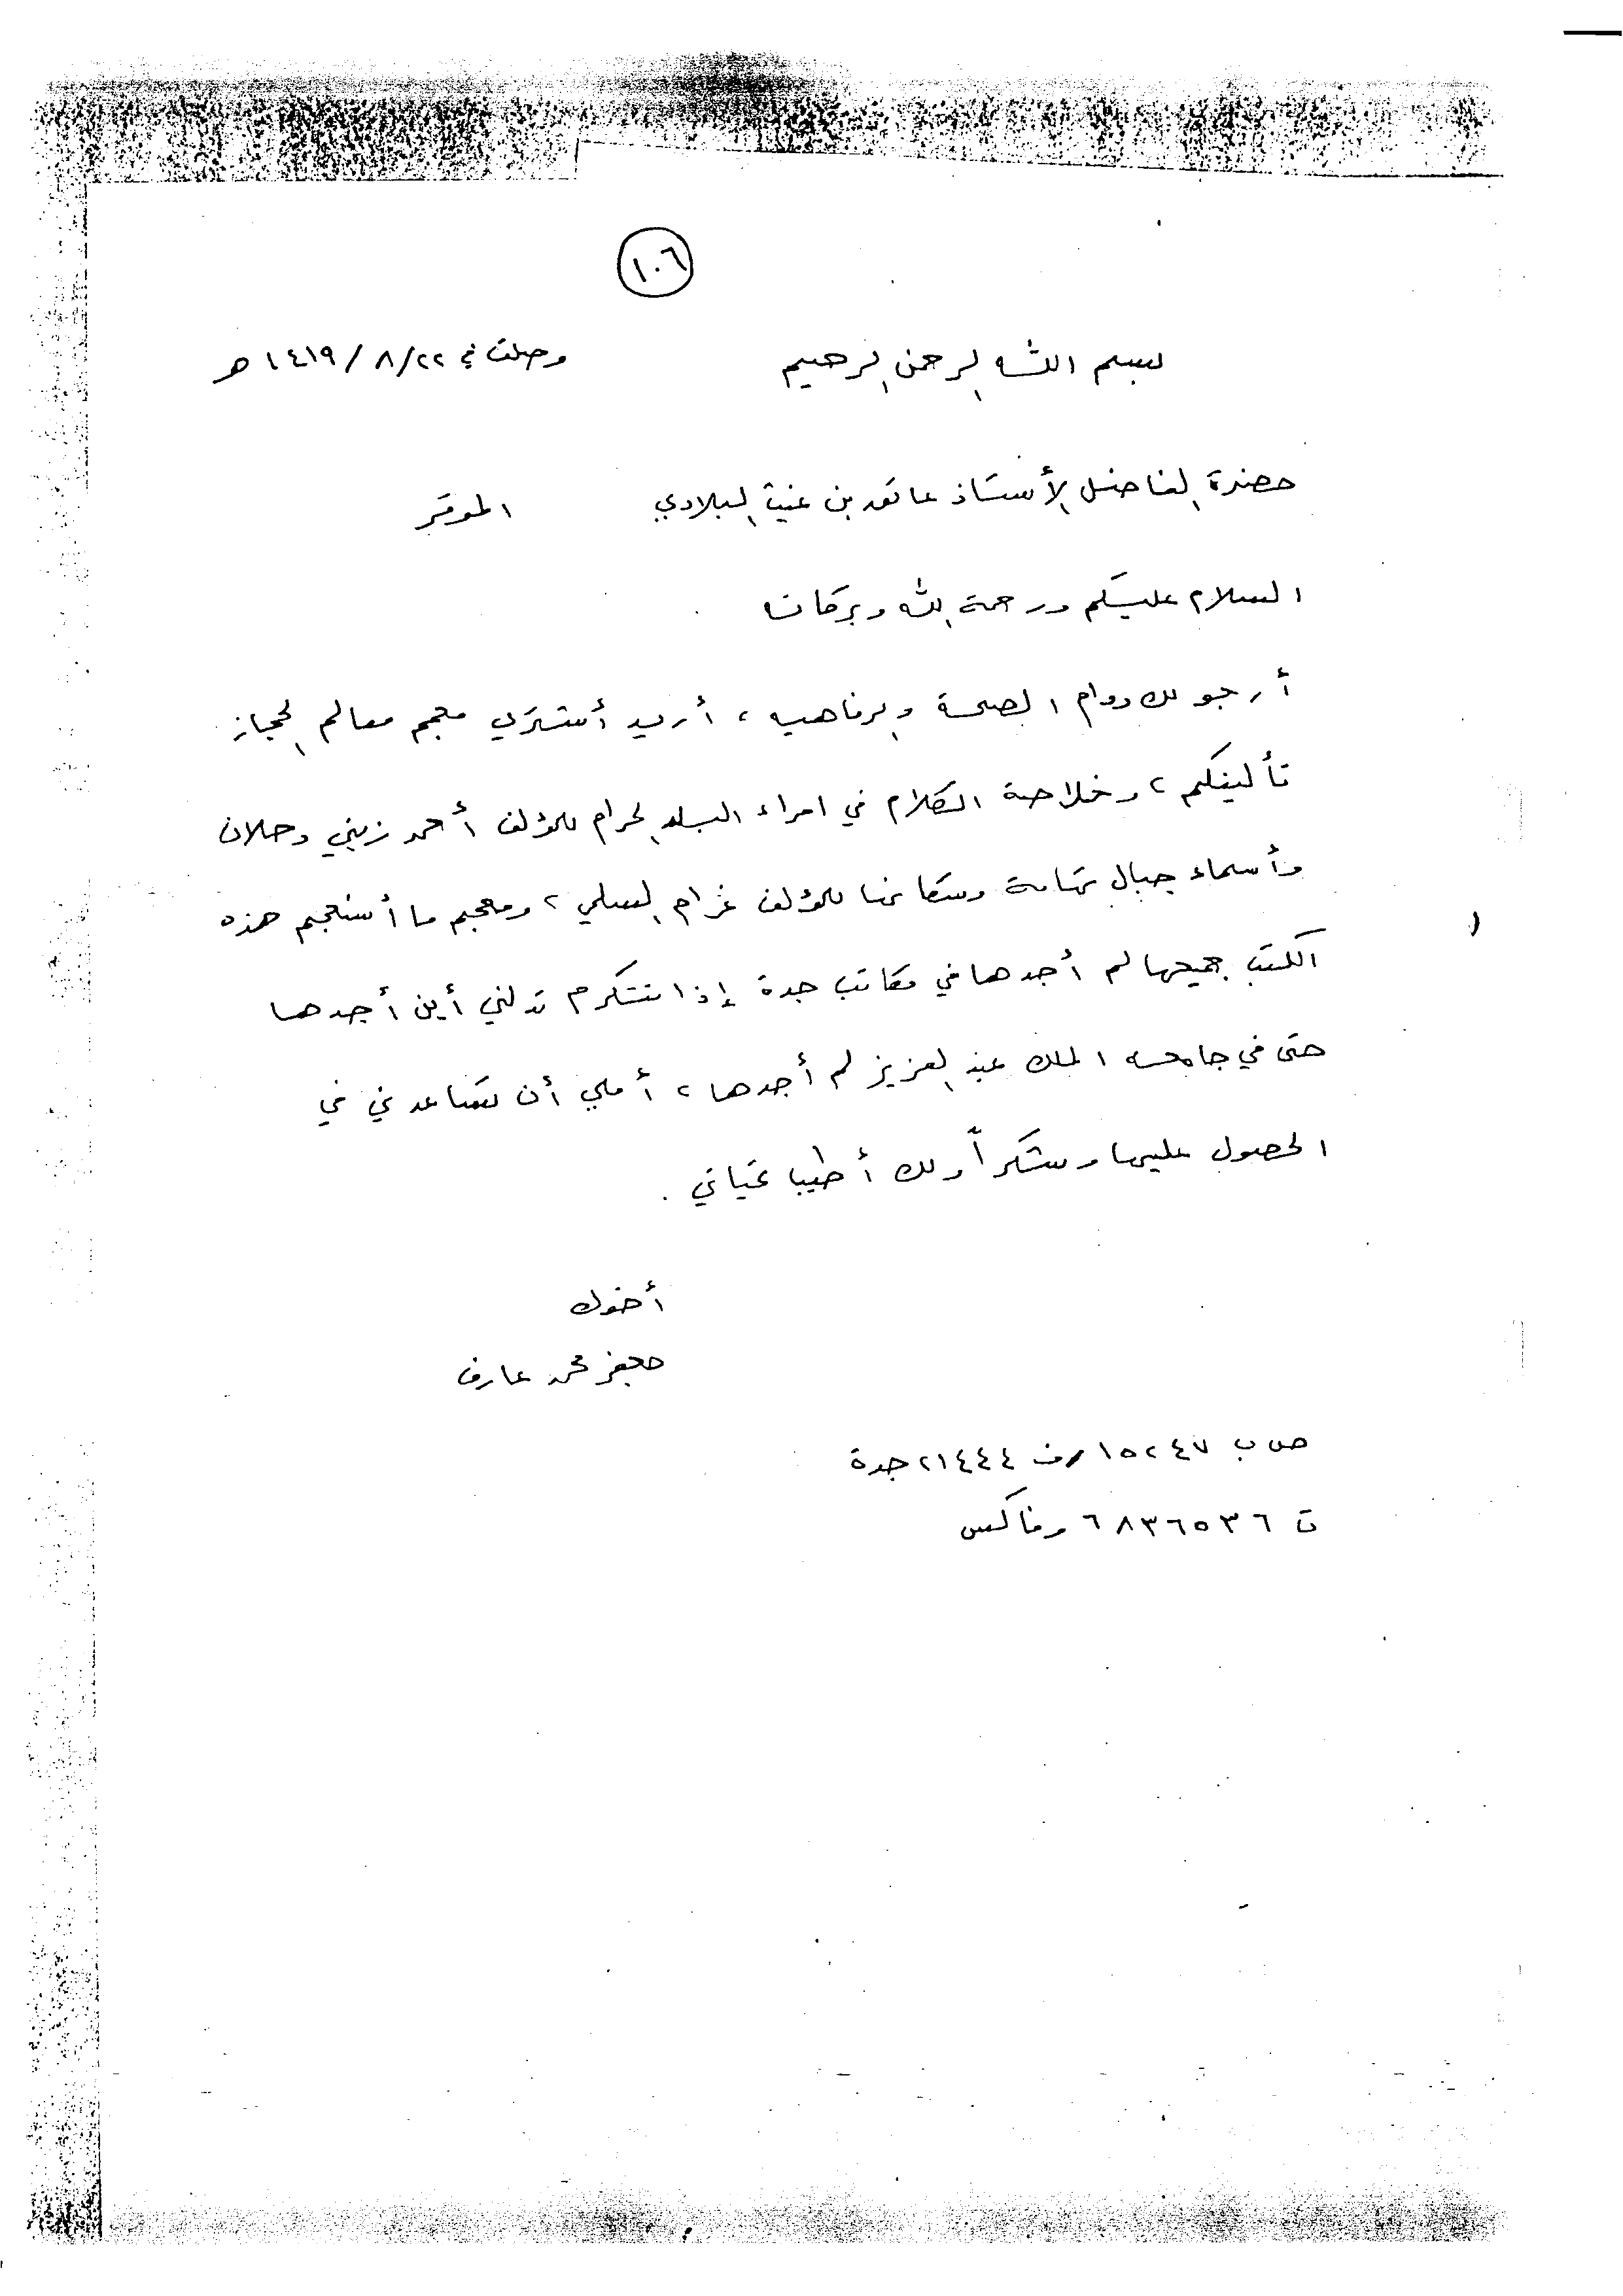 ١٠٦
بسم الله الرحمن الرحيم
وصلت في ٢٢/٨/١٤١٩هـ
حضرة الفاضل الأستاذ عاتق بن غيث البلادي الموقر
السلام عليكم ورحمة الله وبركاته
أرجو لك دوام الصحة والرفاهيه، أريد أشتري معجم معالم الحجاز
تأليفكم، وخلاصة الكلام في امراء البلد الحرام للمؤلف أحمد زيني دحلان
وأسماء جبال تهامة وسكانها للمؤلف غرام السلمي، ومعجم ما أستعجم هذه
الكتب جميعها لم أجدها في مكاتب جدة إذا تتكرم تدلني أين أجدها
حتى في جامعه الملك عبد العزيز لم أجدها، أملي أن تساعدني في
الحصول عليها وشكراً ولك أطيب تحياتي.
أخوك
جعفر محمد عارف
ص ب ١٥٢٤٧ رف ٢١٤٤٤ جدة
ت ٦٨٣٦٥٣٦ وفاكس